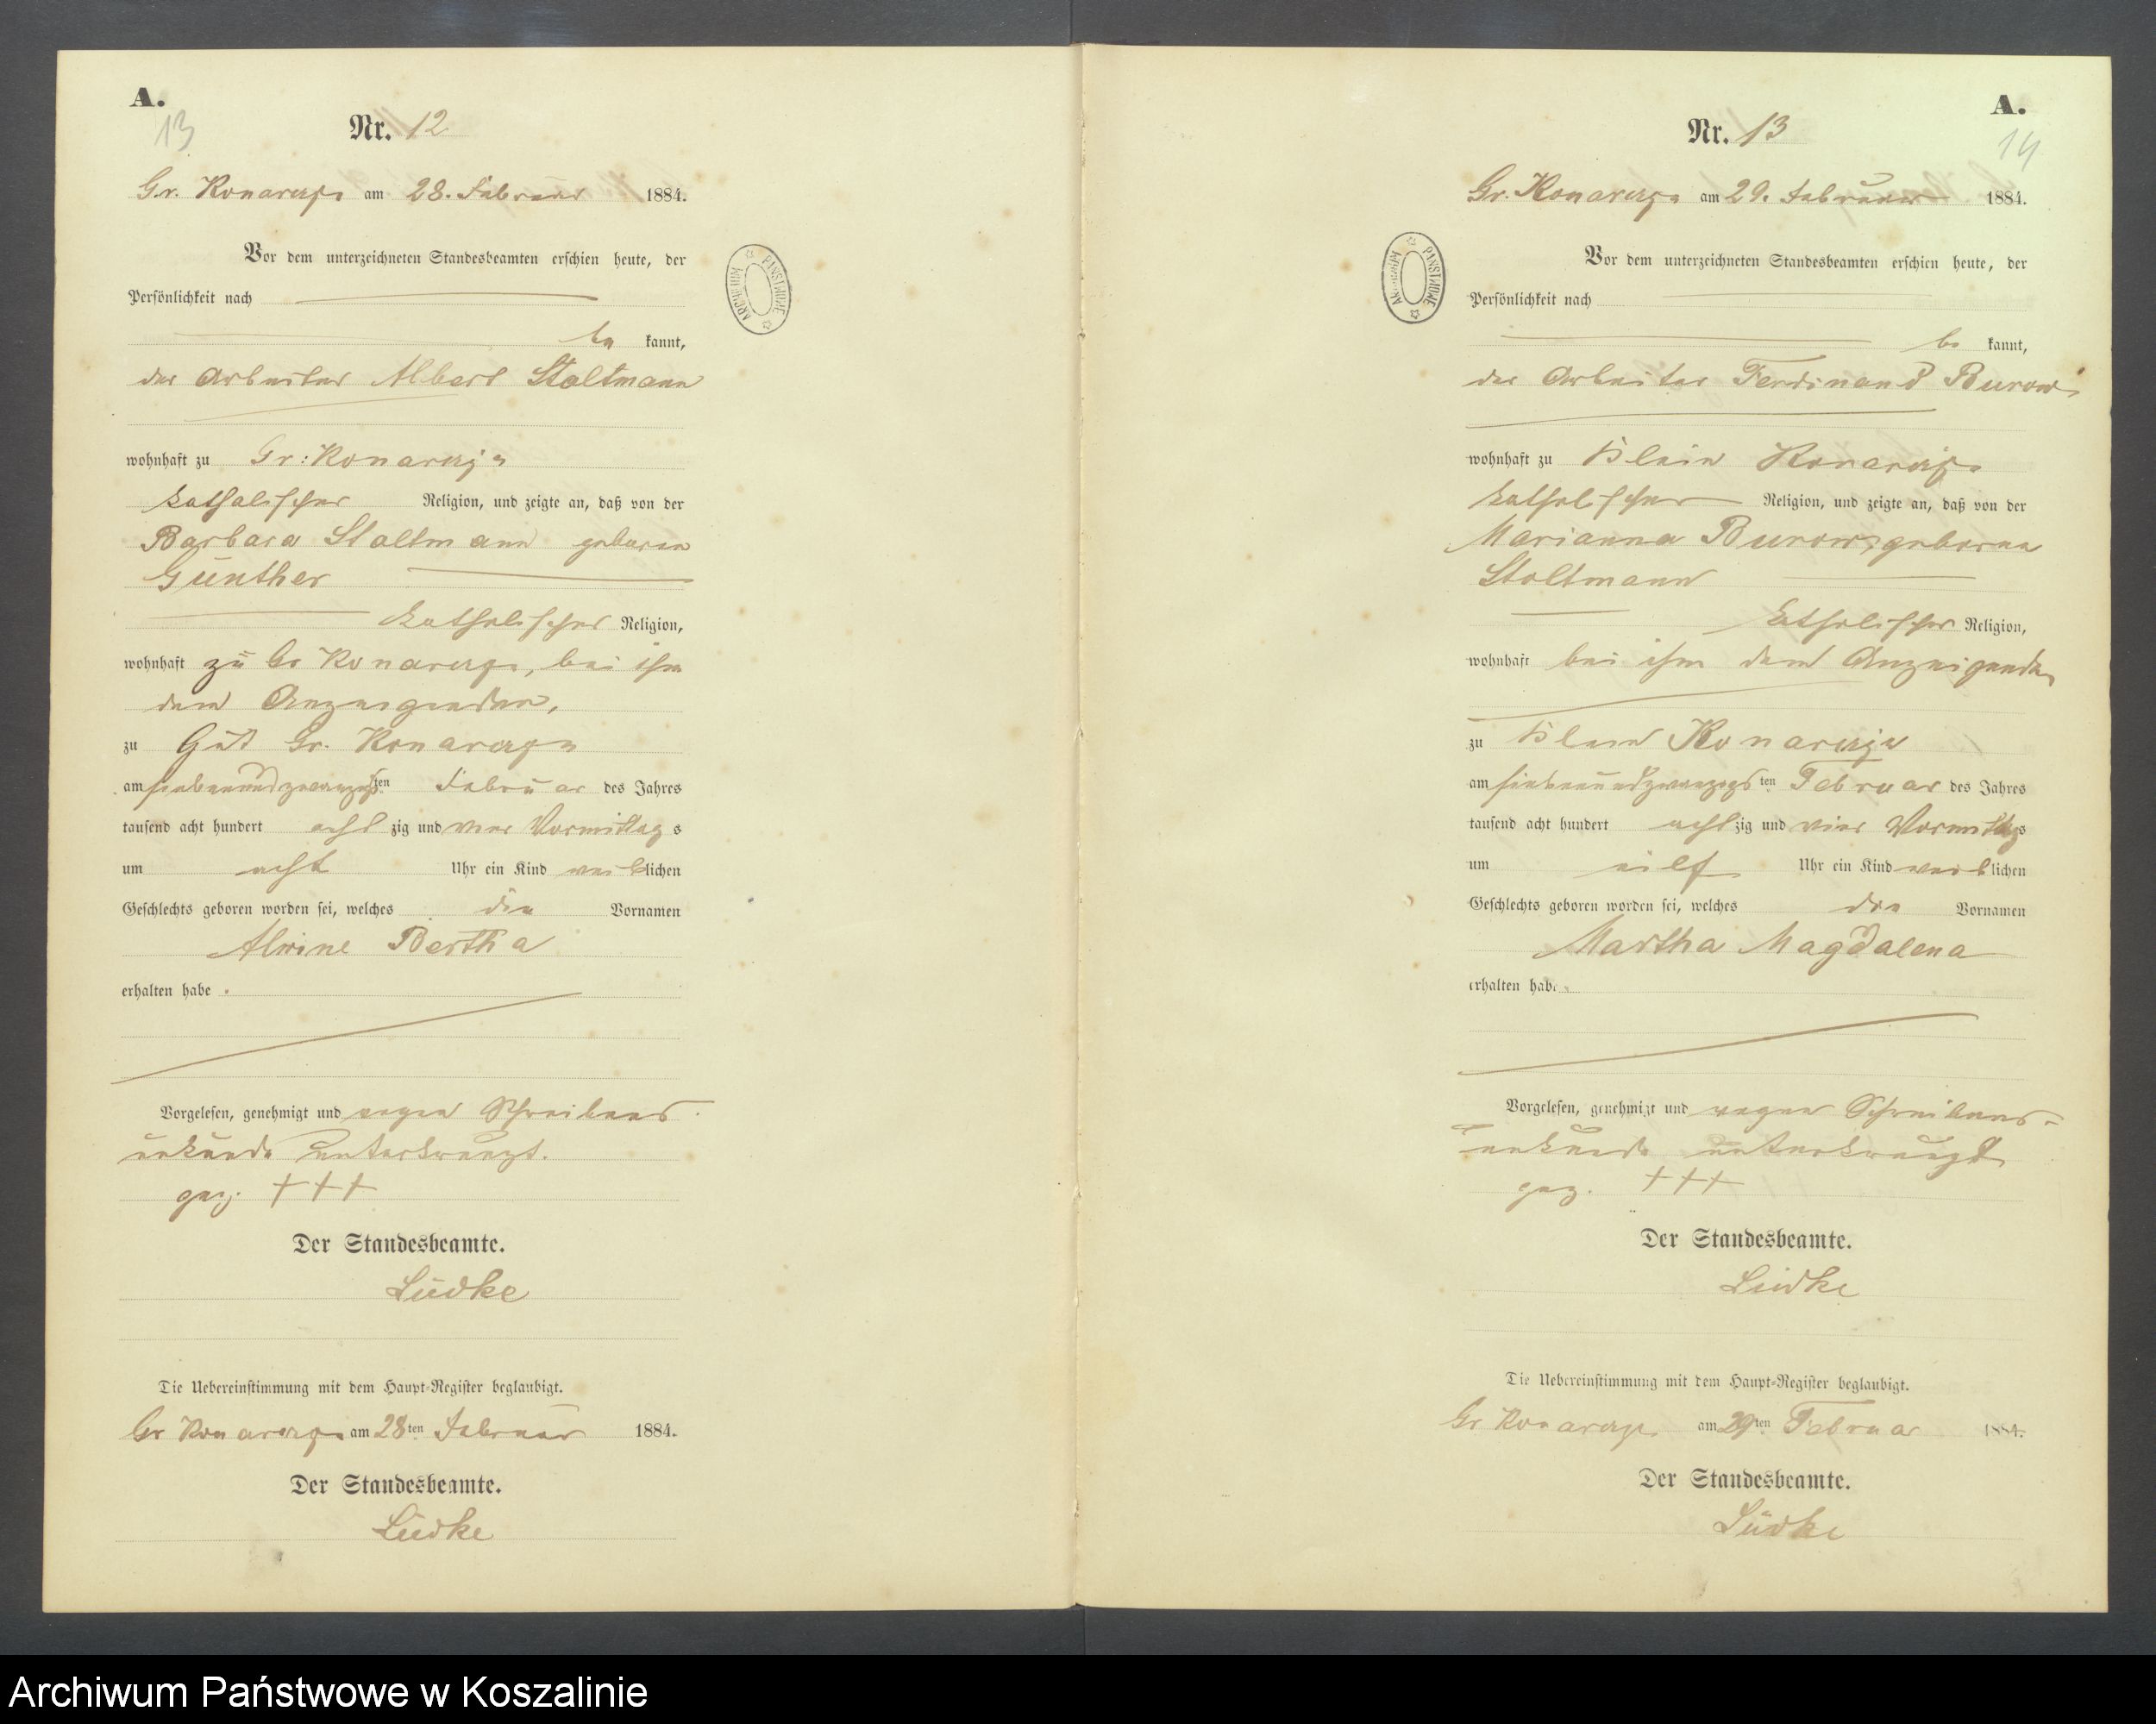 A.
13
Nr. 12
Gr. Konarczyn am 28. Februar 1884.
Vor dem unterzeichneten Standesbeamten erschien heute, der
Persönlichkeit nach
be kannt,
der Arbeiter Albert Stoltmann
wohnhaft zu Gr: Konarczyn
katholischer Religion, und zeigte an, daß von der
Barbara Stoltmann geboren
Günther
katholischer Religion,
wohnhaft zu Gr Konarczyn, bei ihm
dem Anzeigenden,
zu Gut Gr. Konarczyn
am siebenundzwanzigsten Februar des Jahres
tausend acht hundert acht zig und vier Vormittag s
um acht Uhr ein Kind weiblichen
Geschlechts geboren worden sei, welches die Vornamen
Alwine Bertha
erhalten habe.
Vorgelesen, genehmigt und wegen Schreibens
unkunde unterkreuzt.
gez. +++
Der Standesbeamte.
Lüdke
Die Uebereinstimmung mit dem Haupt-Register beglaubigt.
Gr Konarczyn am 28ten Februar 1884.
Der Standesbeamte.
Lüdke
A.
14
Nr. 13
Gr. Konarczyn am 29. Februar 1884.
Vor dem unterzeichneten Standesbeamten erschien heute, der
Persönlichkeit nach
be kannt,
der Arbeiter Ferdinand Burow
wohnhaft zu Klein Konarczyn
katholischer Religion, und zeigte an, daß von der
Marianna Burow, geborene
Stoltmann
katholischer Religion,
wohnhaft bei ihm dem Anzeigenden
zu Klein Konarczyn
am siebenundzwanzigsten Februar des Jahres
tausend acht hundert acht zig und vier Vormittags
um eilf Uhr ein Kind weiblichen
Geschlechts geboren worden sei, welches die Vornamen
Martha Magdalena
erhalten habe.
Vorgelesen, genehmigt und wegen Schreibens-
unkunde unterkreuzt
gez. +++
Der Standesbeamte.
Lüdke
Die Uebereinstimmung mit dem Haupt-Register beglaubigt.
Gr Konarczyn am 29ten Februar 1884.
Der Standesbeamte.
Lüdke
ARCHIWUM PAŃSTWOWE
ARCHIWUM PAŃSTWOWE
Archiwum Państwowe w Koszalinie